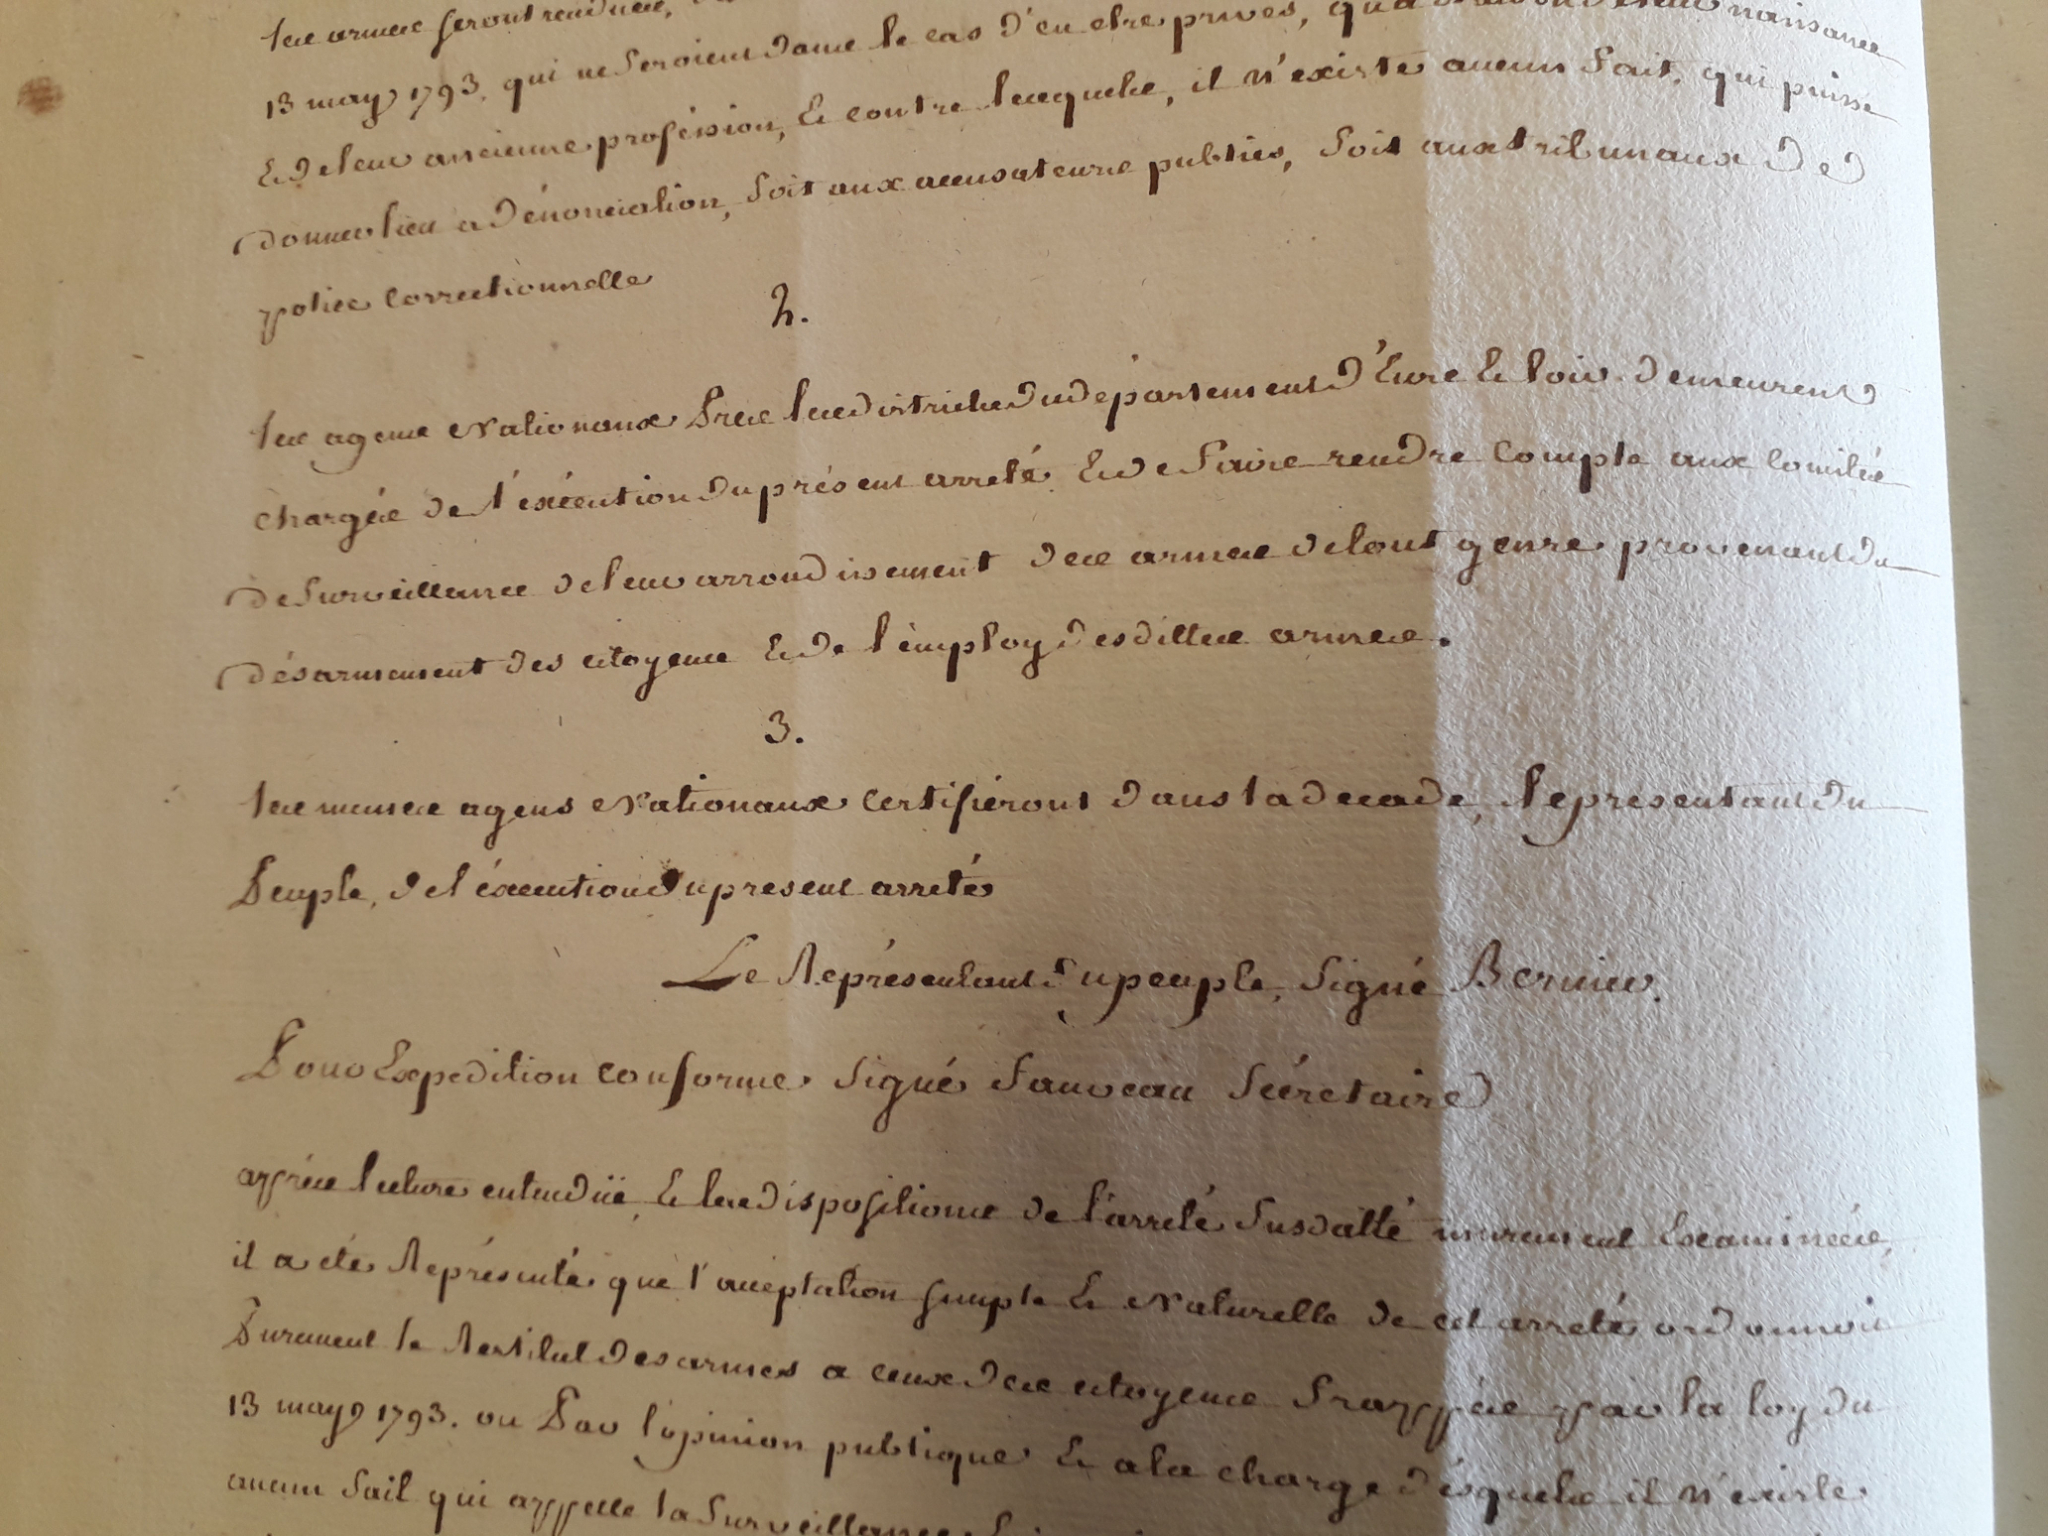 les armes seront rendues,
13 may 1793. qui ne seroient dans le cas d'en etre privés, qu'a raison de leur naissance
et de leur ancienne proféssion, et contre lesquels, il n'existe aucun fait, qui puisse
donner lieu a dénonciation, soit aux accusateurs publics, soit aux tribunaux de
police correctionnelle
2.
les agens nationaux près les districts du département d'Eure et loir demeurent
chargés de l'exécution du présent arreté. et de faire rendre compte aux comités
de surveillance de leur arrondissement des armes de tout genre provenant du
désarmement des citoyens et de l'employ desdittes armes.
3.
les mêmes agens nationaux certifiéront dans la decade, le représentant du
Peuple, de l'éxécution du présent arreté
Le Représentant du peuple, signé Bernier.
Pour Expedition conforme signé Fauveau sécretaire
après lecture entenduë, et les dispositions de l'arreté susdatté murement Examinées,
il a été Représenté que l'acceptation simple et naturelle de cet arreté ordonnoit
Purement le Restitut des armes a ceux des citoyens frappés par la loy du
13 may 1793. ou Par l'opinion publique et a la charge désquels il n'existe
aucun fait qui appelle la surveillance